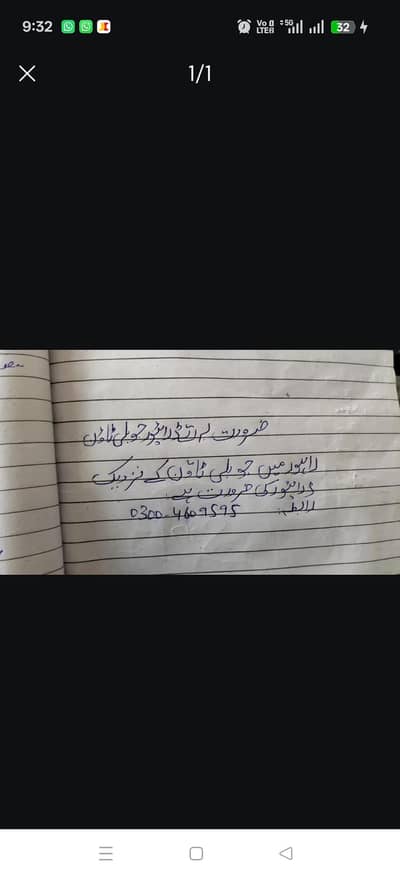 9:32
Vo LTE 5G 32
1/1
ضرورت برائے ڈرائیور جوبلی ٹاؤن
لاہور میں جوبلی ٹاؤن کے نزدیک
ڈرائیور کی ضرورت ہے۔
رابطہ: 0300-4609595